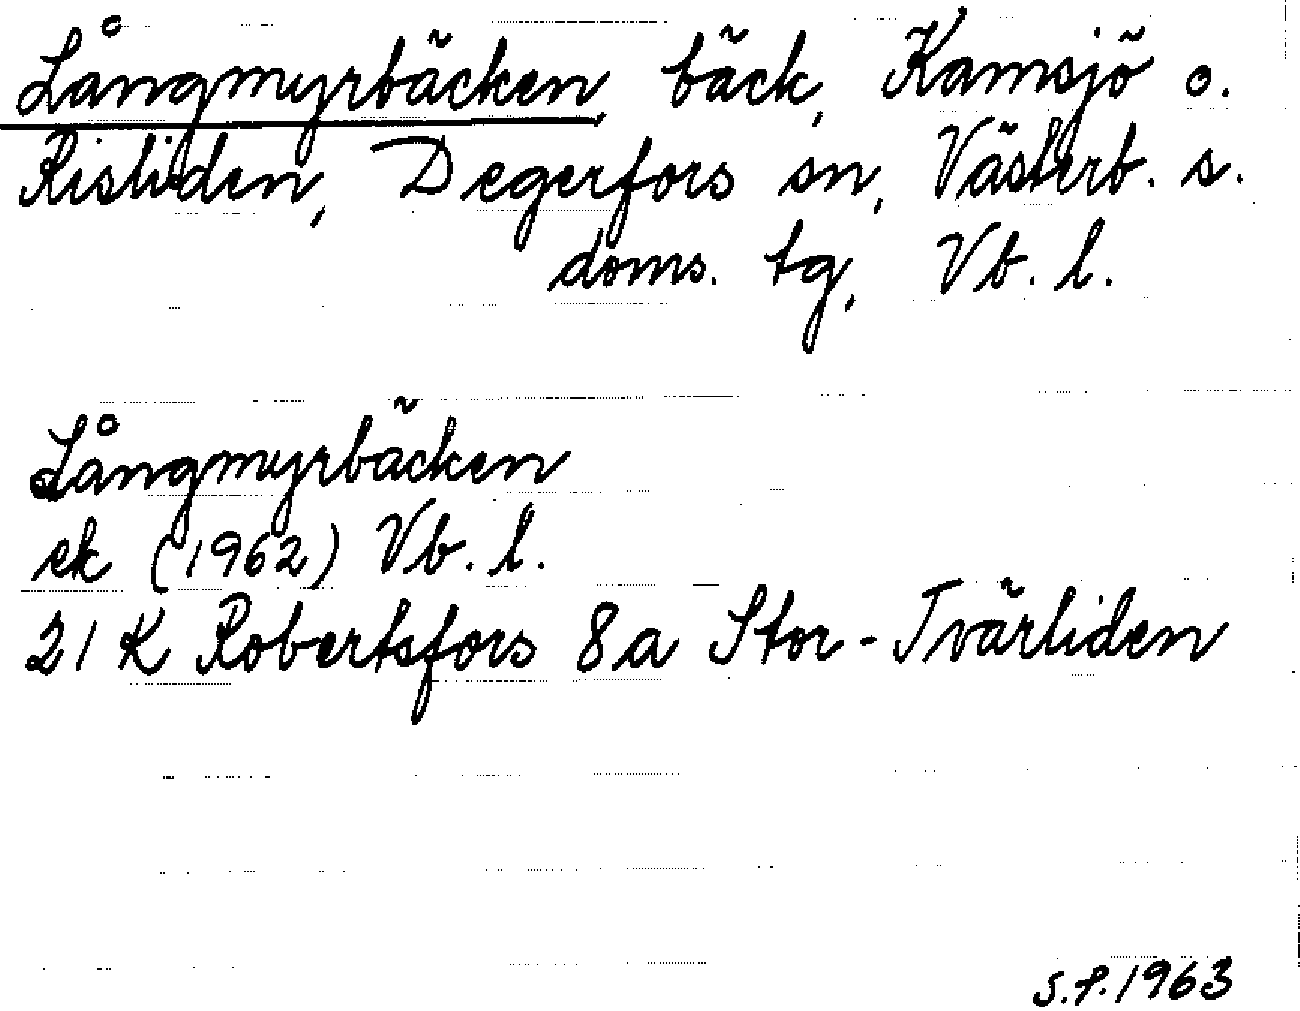 Långmyrbäcken, bäck, Kamsjö o.
Risliden, Degerfors sn, Västerb. s.
doms. tg, Vb. l.
Långmyrbäcken
ek (1962) Vb. l.
21 K Robertsfors 8a Stor-Tvärliden
S.P. 1963